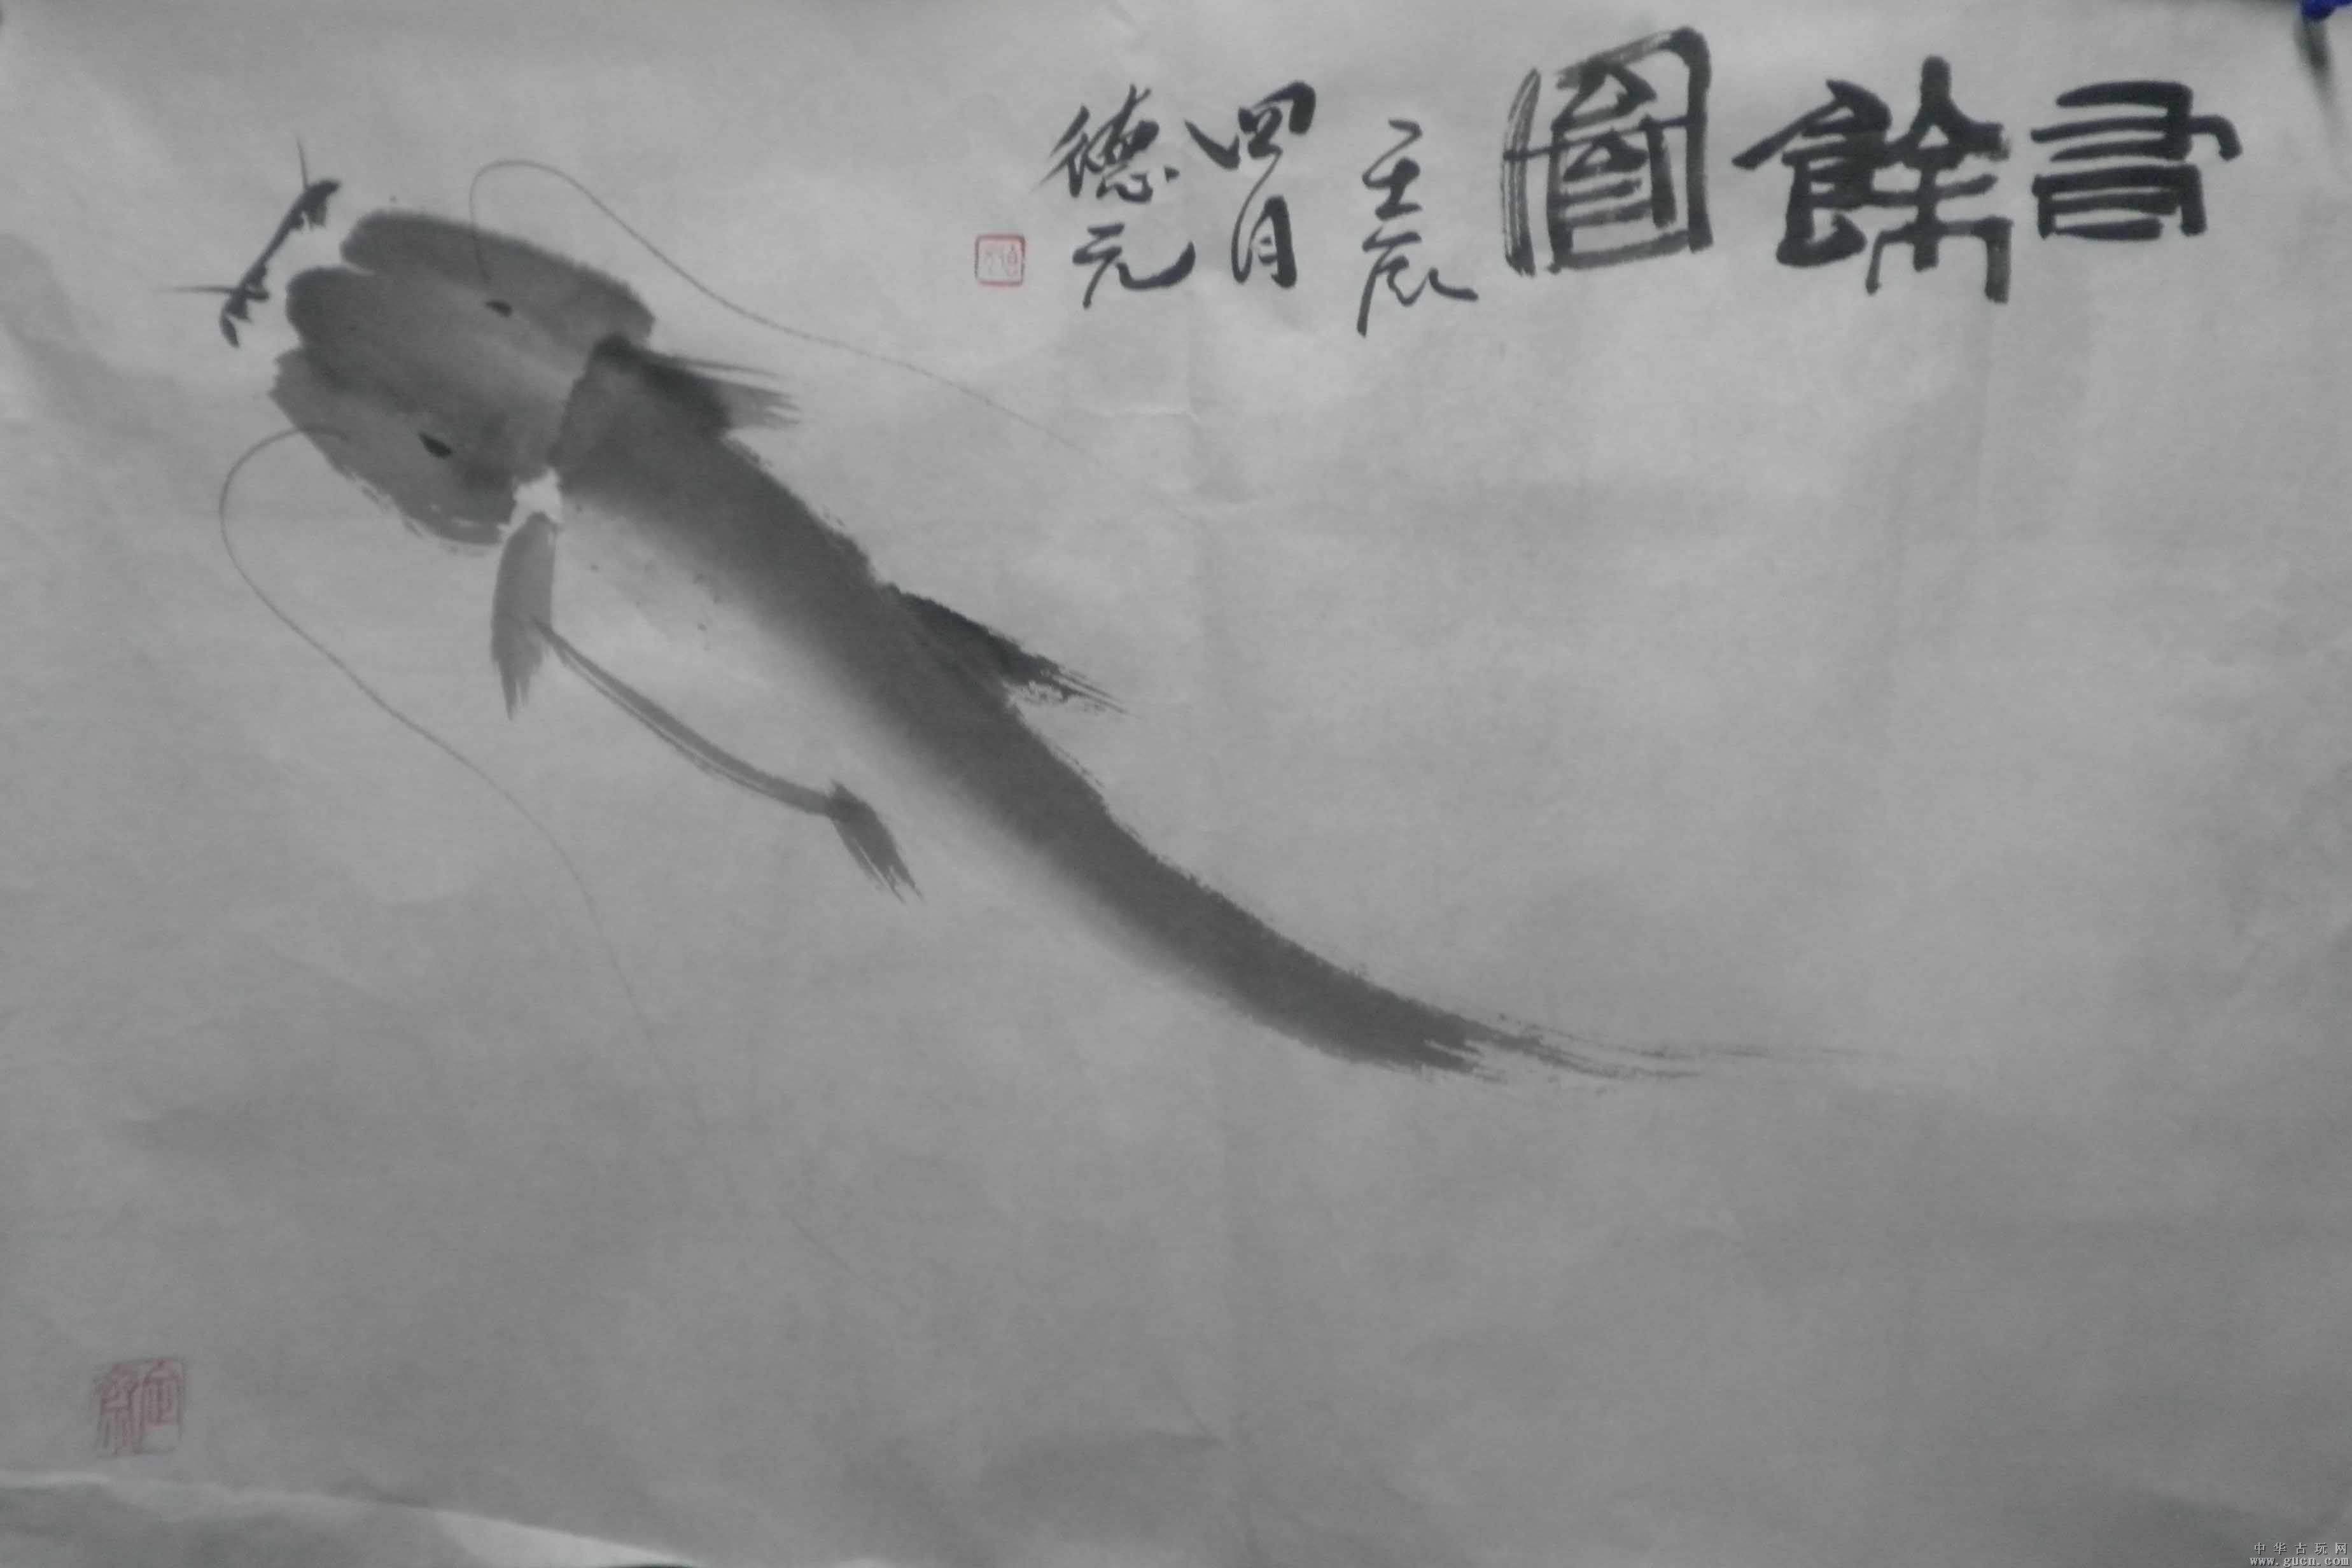 有餘圖
壬辰
四月
德元
中华古玩网
www.gucn.com